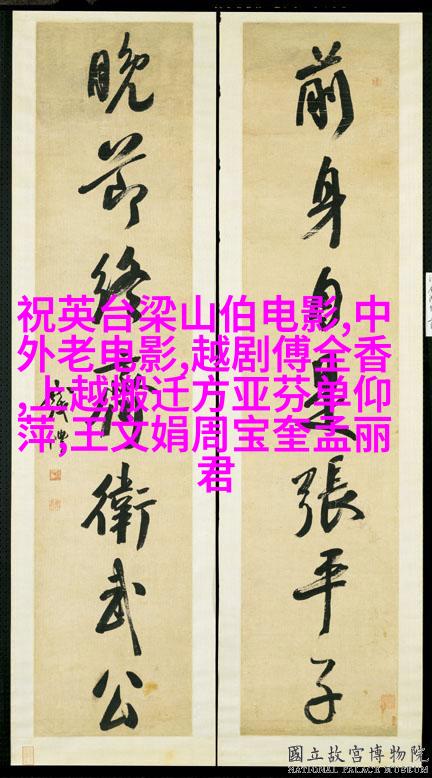 前身自是張平子
晚節終齊衛武公
祝英台梁山伯电影,中
外老电影,越剧傅全香
,上越搬迁方亚芬单仰
萍,王文娟周宝奎孟丽
君
國立故宮博物院
NATIONAL PALACE MUSEUM